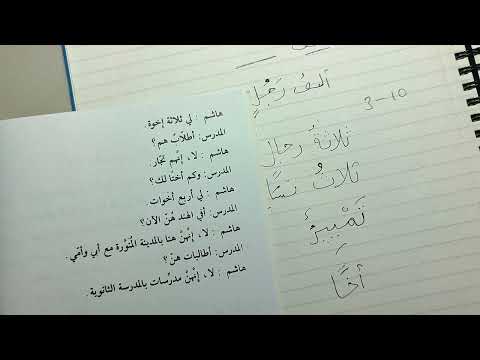 هاشم : لي ثلاثة إخوة.
المدرس: أطلّاب هم؟
هاشم : لا، إنّهم تجّار.
المدرس: وكم أختا لك؟
هاشم : لي أربع أخوات.
المدرس: أفي الهند هُنّ الآن؟
هاشم : لا، إنّهنّ هنا بالمدينة المُنَوّرة مع أبي وأمّي.
المدرس: أطالبات هنّ؟
هاشم : لا، إنّهنّ مدرِّسات بالمدرسة الثانوية.
ألف رَجُلٍ
3-10
ثلاثةُ رجالٍ
ثلاثُ نساءٍ
تَمْيِيزٌ
أخًا